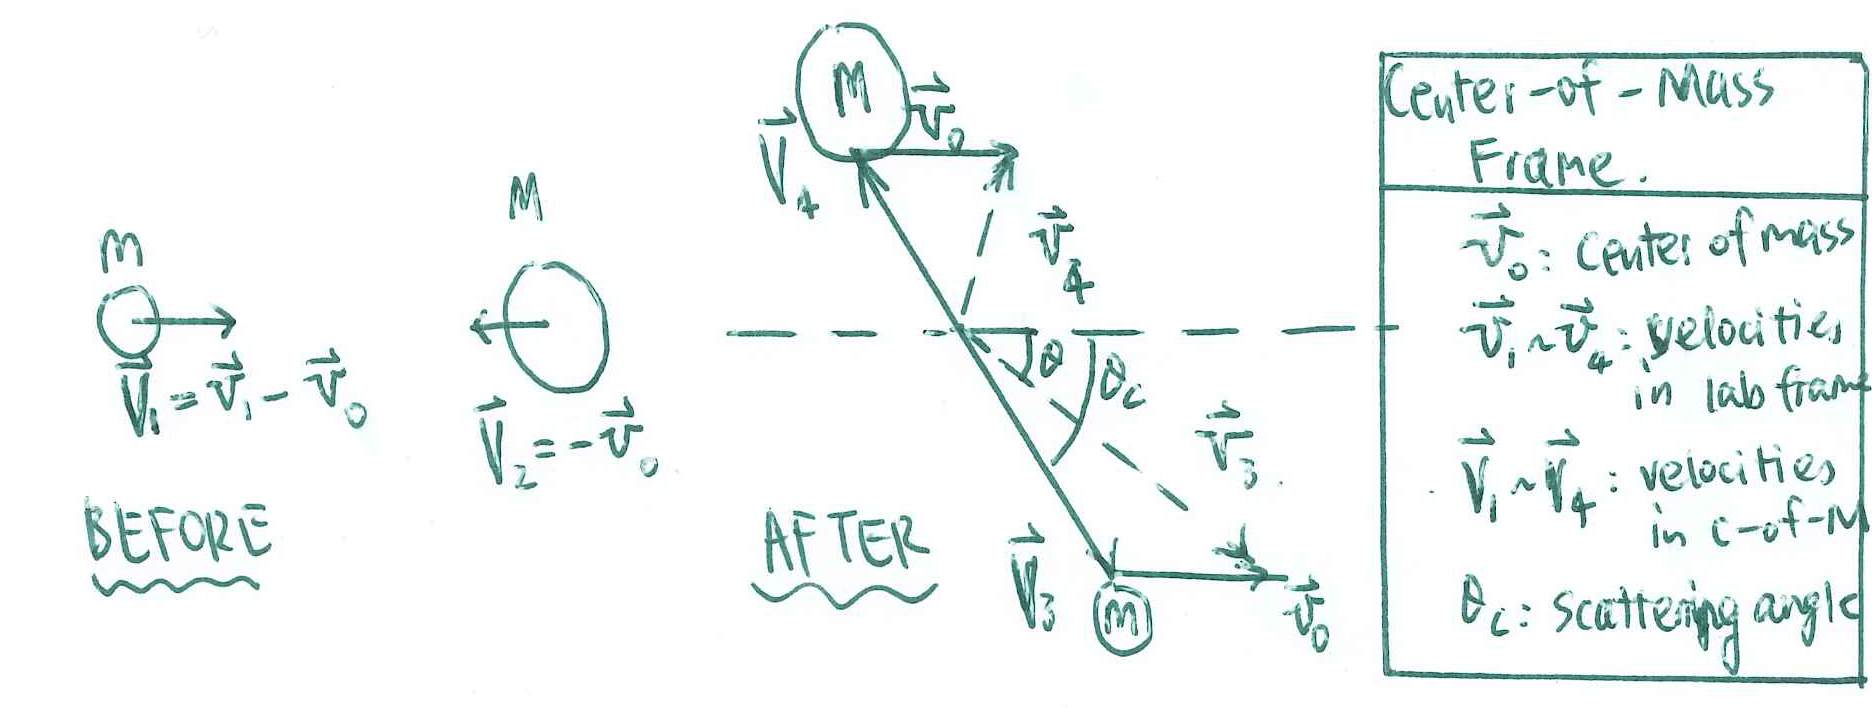 m
V⃗₁ = v⃗₁ - v⃗₀
BEFORE
M
V⃗₂ = -v⃗₀
M
v⃗₀
V⃗₄
v⃗₄
θ
θc
v⃗₃
AFTER
V⃗₃
m
v⃗₀
Center-of-Mass
Frame.
v⃗₀: center of mass
v⃗₁~v⃗₄: velocities
in lab frame
V⃗₁~V⃗₄: velocities
in c-of-M
θc: scattering angle